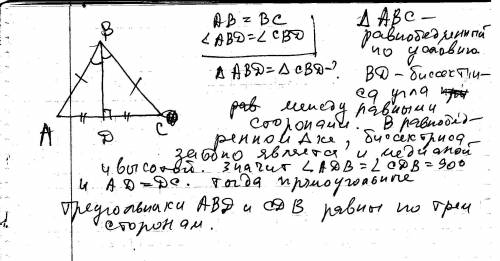 B
A
D
C
AB = BC
∠ABD = ∠CBD
△ABD = △CBD - ?
△ABC —
равнобедренный
по условию.
BD - биссектри-
са угла
между равными
сторонами. В равнобед-
ренном △ке, биссектриса
заодно является и медианой
и высотой. Значит ∠ADB = ∠CDB = 90°
и AD = DC. Тогда прямоугольные
треугольники ABD и CDB равны по трем
сторонам.